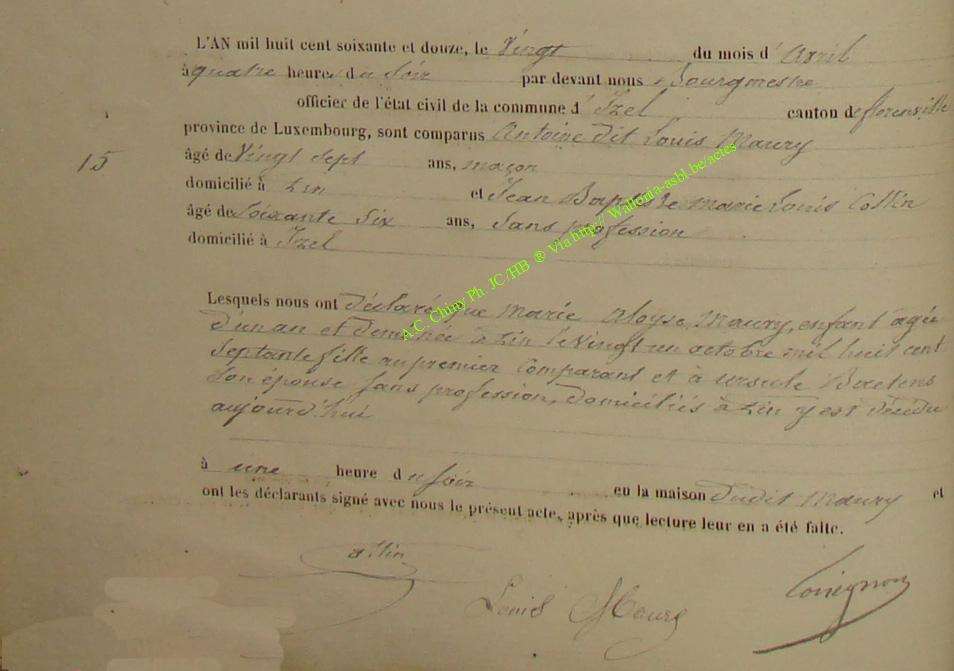 L'AN mil huit cent soixante et douze, le Vingt du mois d'Avril
à quatre heures du Soir par devant nous Bourgmestre
officier de l'état civil de la commune d'Izel canton de florenville
province de Luxembourg, sont comparus Antoine dit Louis Maury
15 âgé de Vingt Sept ans, maçon
domicilié à Pin et Jean Baptiste Marie Louis Collin
âgé de Soixante Six ans, Sans profession
domicilié à Izel
Lesquels nous ont Déclaré que Marie Aloyse Maury, enfant âgée
D'un an et demi née à Pin le Vingt un octobre mil huit cent
Septante fille au premier Comparant et à Ursule Baetens
Son épouse Sans profession, Domiciliés à Pin y est Décédée
aujourd'hui
à une heure du Soir en la maison Dudit Maury et
ont les déclarants signé avec nous le présent acte, après que lecture leur en a été faite.
Collin
Louis Maury
A.C. Chiny Ph. JC/HB ® Via http// Wallonia-asbl.be/actes